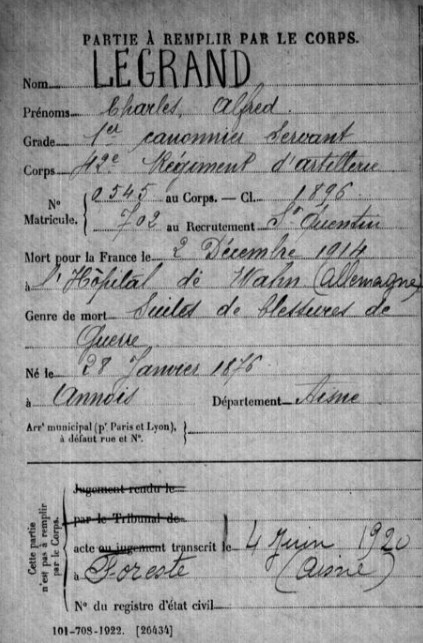 PARTIE À REMPLIR PAR LE CORPS.
Nom LEGRAND
Prénoms Charles, Alfred.
Grade 1er canonnier Servant
Corps 42e Régiment d'artillerie
N° Matricule. { 0545 au Corps. — Cl. 1896
702 au Recrutement St Quentin
Mort pour la France le 2 Décembre 1914
à l'Hôpital de Wahn (Allemagne)
Genre de mort Suites de blessures de
Guerre
Né le 28 Janvier 1876
à Annois Département Aisne
Arrt municipal (pr Paris et Lyon), à défaut rue et N°. {
Cette partie n'est pas à remplir par le Corps.
Jugement rendu le
par le Tribunal de
acte ou jugement transcrit le 4 Juin 1920
à Foreste (Aisne)
N° du registre d'état civil
101-708-1922. [26434]